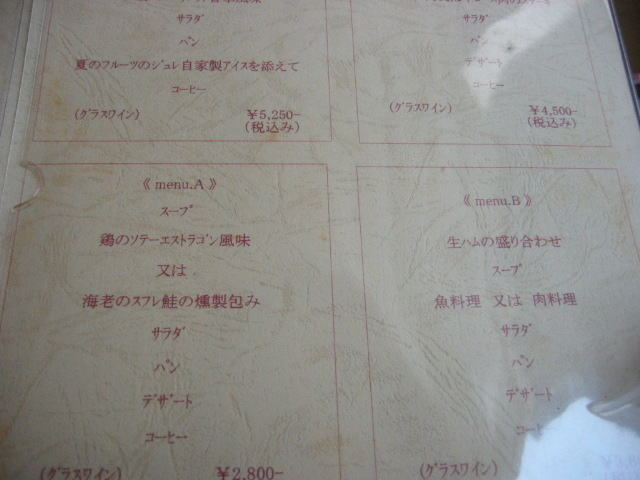 サラダ
パン
夏のフルーツのジュレ自家製アイスを添えて
コーヒー
(グラスワイン) ¥5,250-
(税込み)
サラダ
パン
デザート
コーヒー
(グラスワイン) ¥4,500-
(税込み)
《 menu.A 》
スープ
鶏のソテーエストラゴン風味
又は
海老のスフレ鮭の燻製包み
サラダ
パン
デザート
コーヒー
(グラスワイン) ¥2,800-
《 menu.B 》
生ハムの盛り合わせ
スープ
魚料理 又は 肉料理
サラダ
パン
デザート
(グラスワイン)